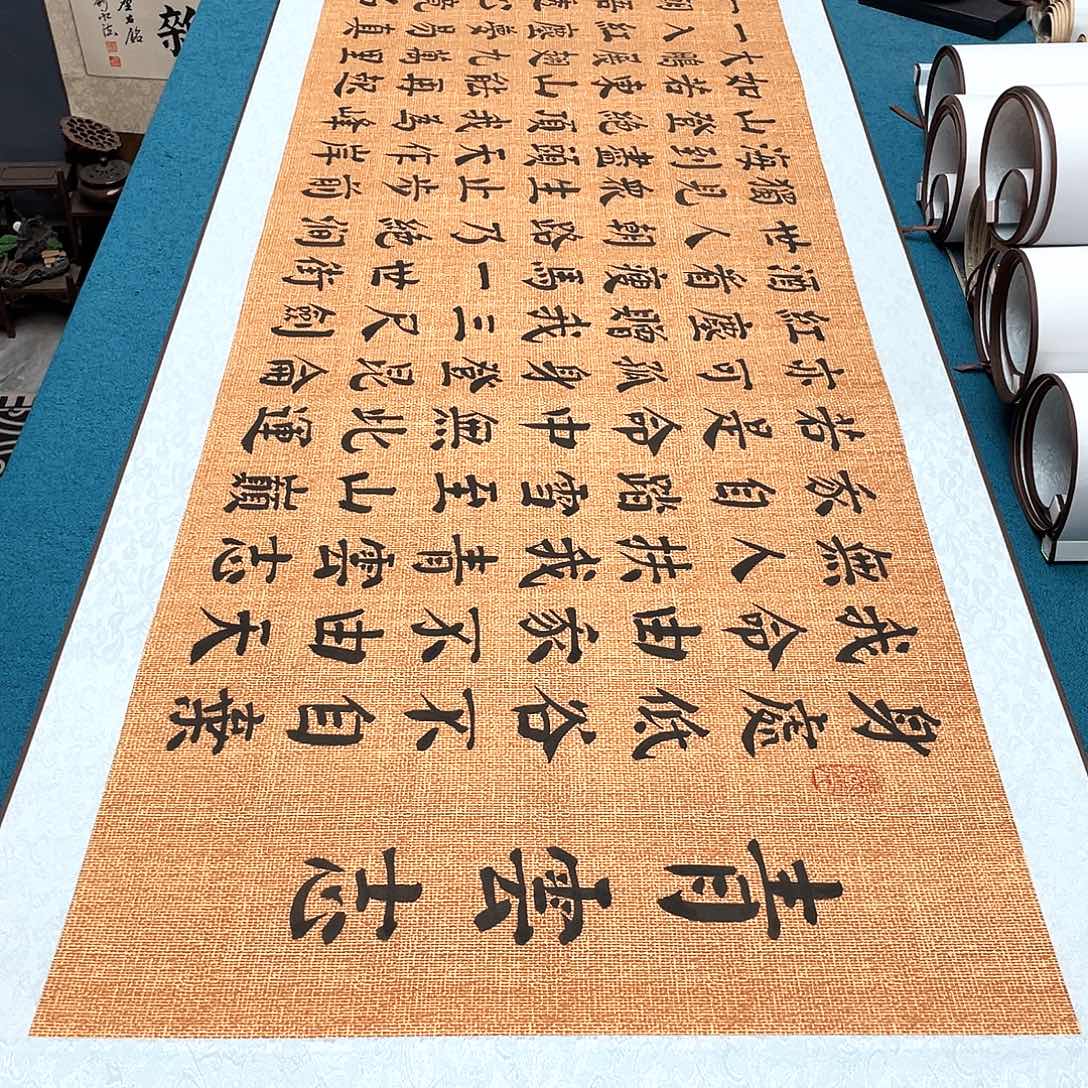 青雲志
身處低谷不自棄
我命由家不由天
無人扶我青雲志
家自踏雪至山巔
若是命中無北運
亦可孤身登昆侖
紅塵贈我三尺劍
酒着瘦馬一世街
世人朝路乃絕澗
獨見衆生止步前
海到盡頭天作岸
山登絕頂我為峰
如若東山能再起
大鵬展翅九萬里
一入紅塵夢易真